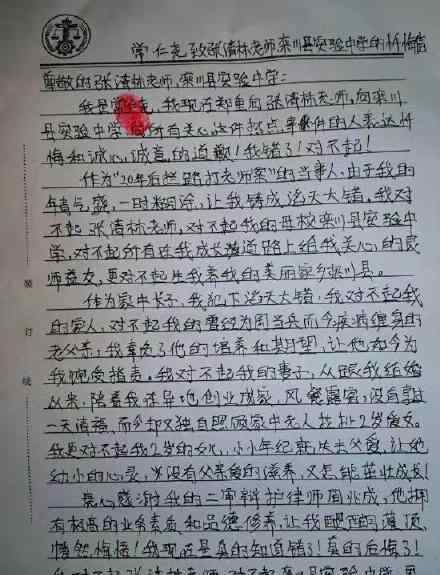 常仁尧致张清林老师,栾川县实验中学的忏悔信
尊敬的张清林老师,栾川县实验中学:
我是常仁尧,我现在郑重向张清林老师,向栾川
县实验中学,向所有关心这件热点事件的人表达忏
悔和诚心诚意的道歉!我错了!对不起!
作为“20年后拦路打老师案”的当事人,由于我的
年青气盛,一时糊涂,让我铸成滔天大错,我对
不起张清林老师,对不起我的母校栾川县实验中
学,对不起所有在我成长道路上给我关心的良
师益友,更对不起生我养我的美丽家乡栾川县。
作为家中长子,我犯下滔天大错,我对不起我
的家人,对不起我的曾经为国当兵而今疾病缠身的
老父亲,我辜负了他的培养和期望,让他如今为
我饱受指责。我对不起我的妻子,从跟我结婚
以来,陪着我在异地创业成家,风餐露宿,没有享过
一天清福,而今却又独自照顾家中老人抚养2岁爱女。
我更对不起我2岁的女儿,小小年纪就失去父爱,让她
幼小的心灵,少没有父亲爱的滋养,又怎能茁壮成长!
衷心感谢我的二审辩护律师周兆成,他拥
有极高的业务素质和品德修养,让我醍醐灌顶,
幡然悔悟!我现在是真的知道错了!真的后悔了!
装
订
线